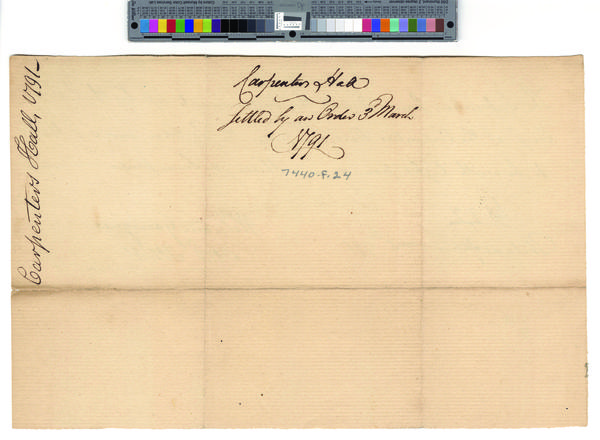 Carpenters Hall
Settled by an Order 3d March
1791
7440.F.24
Carpenters Hall, 1791